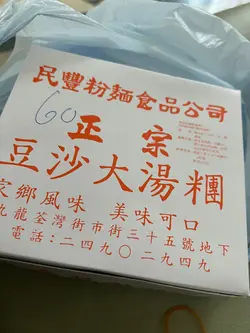 民豐粉麵食品公司
60
正宗
豆沙大湯糰
家鄉風味 美味可口
九龍荃灣街市街三十五號地下
電話：二四九〇二九四九